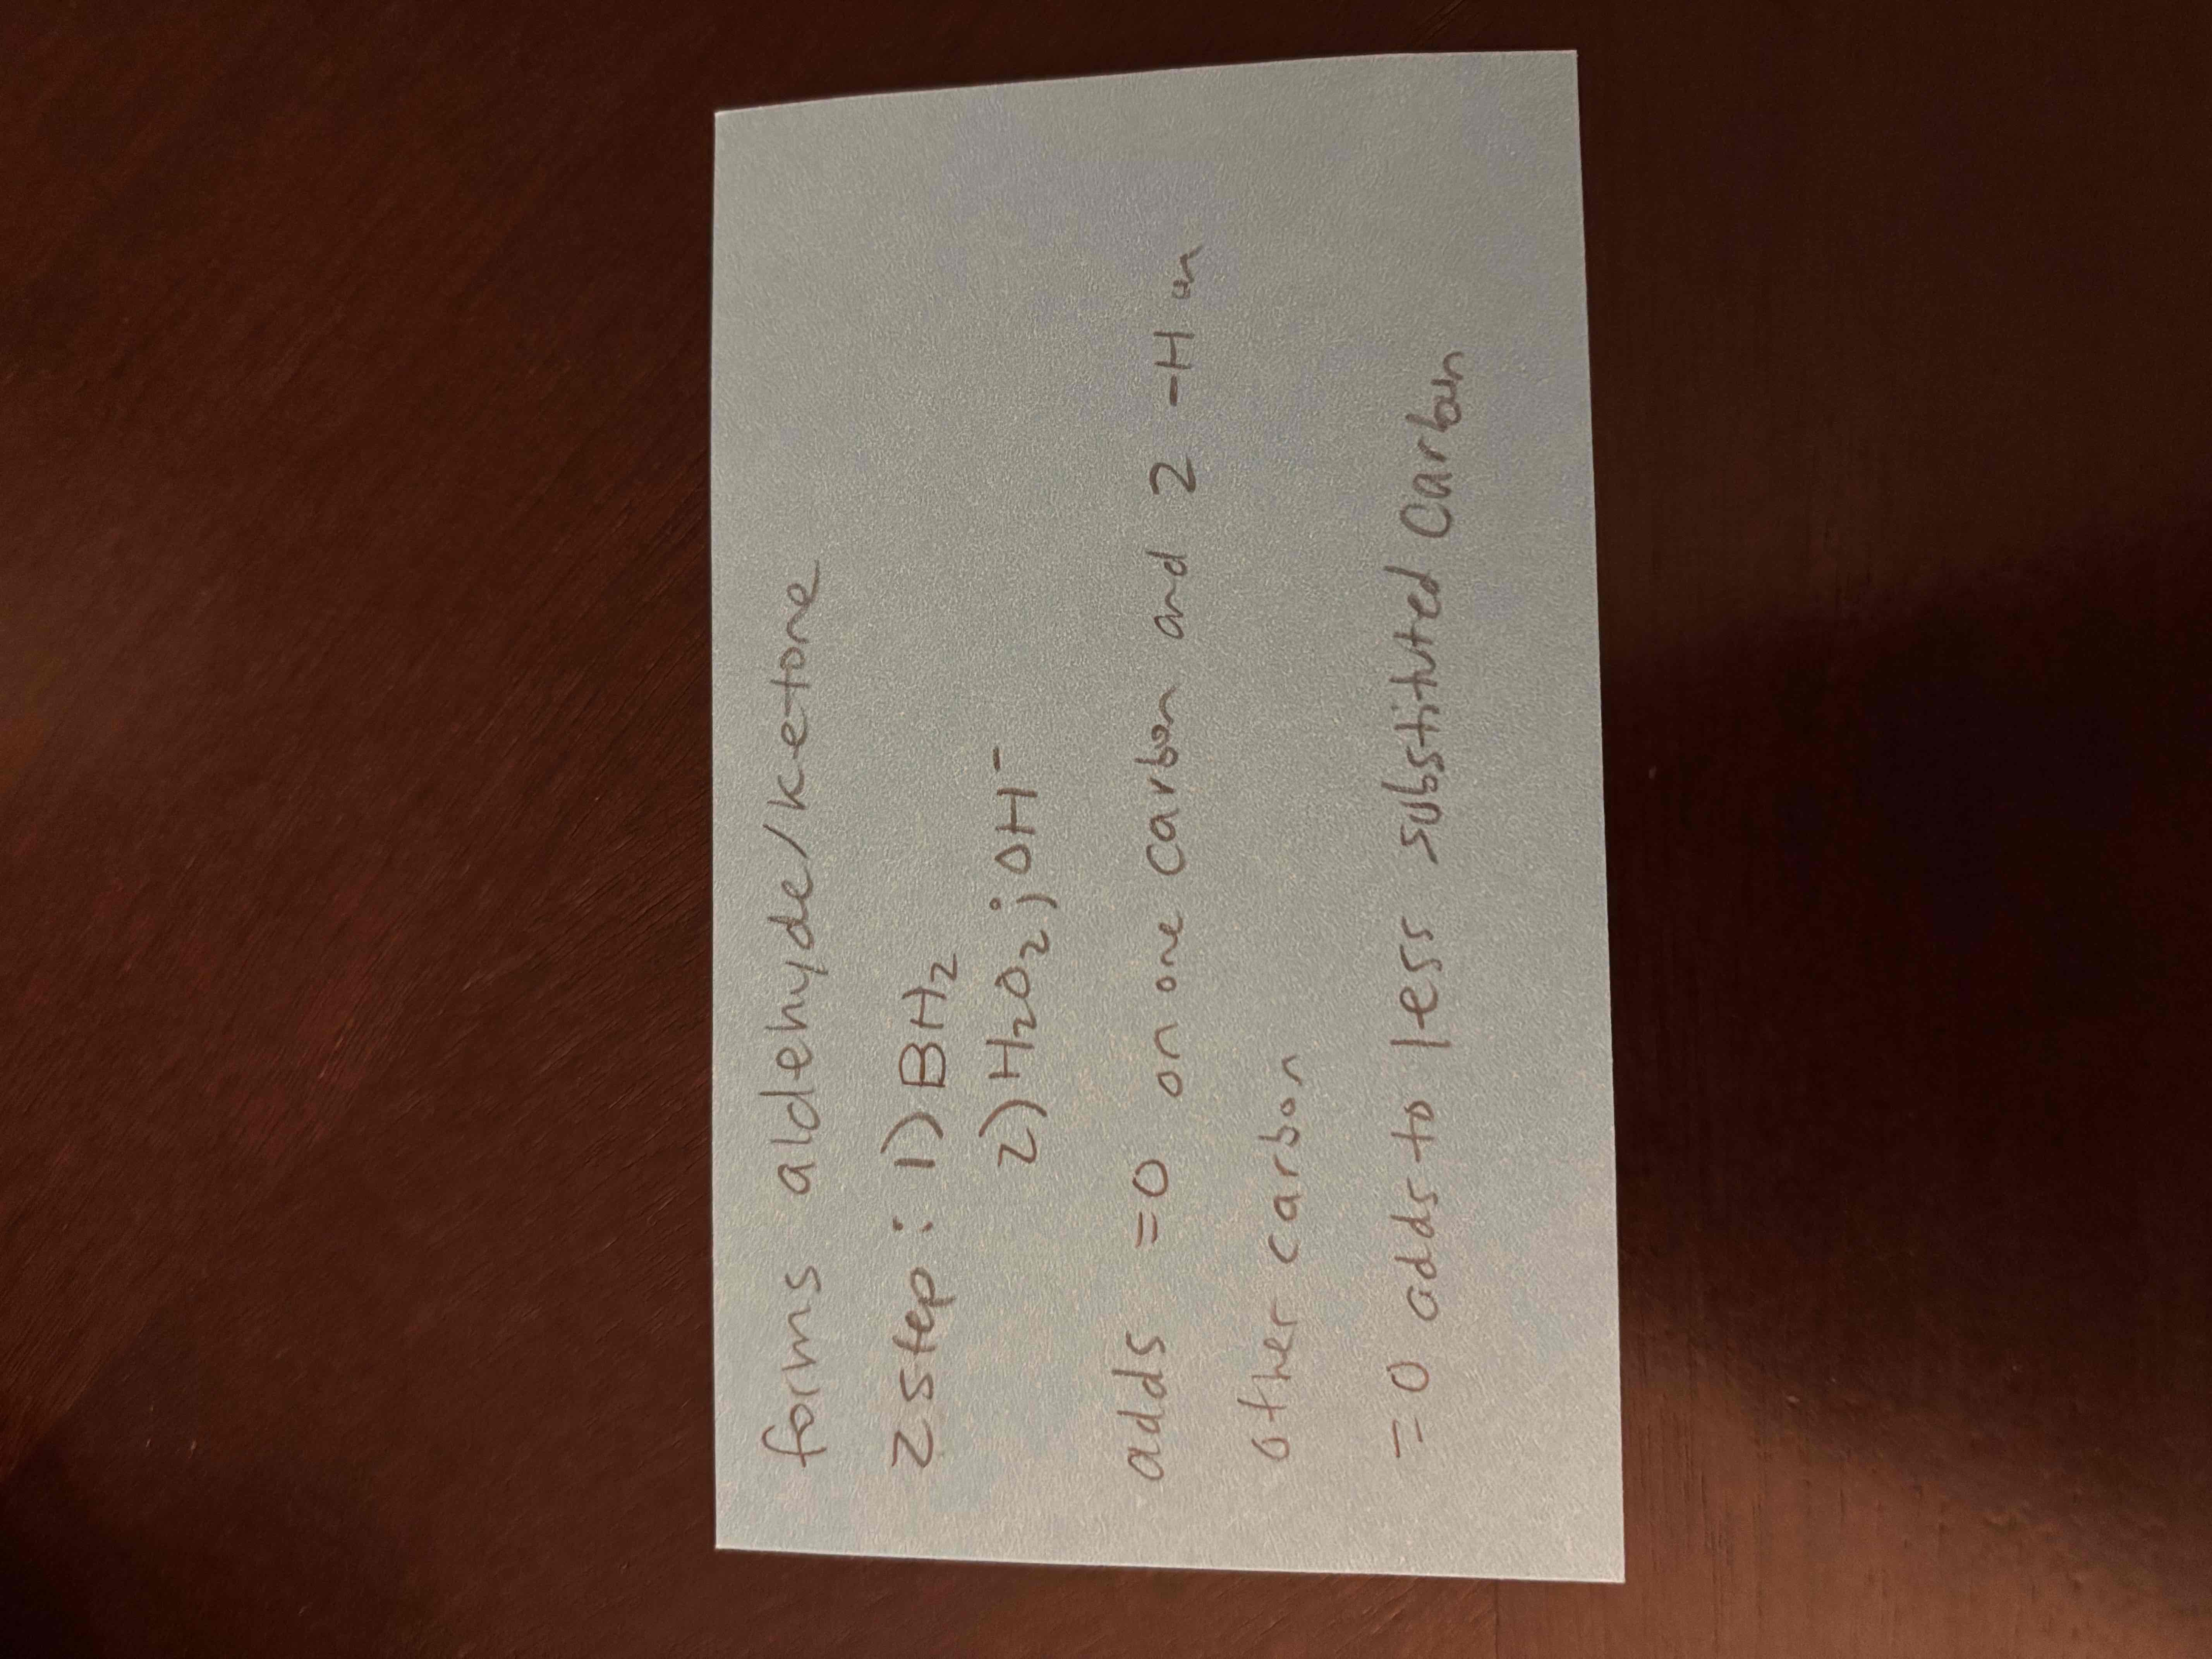 forms aldehyde/ketone
2 step: 1) BH₂
2) H₂O₂; OH⁻
adds =O on one carbon and 2 -H on
other carbon
=O adds to less substituted carbon